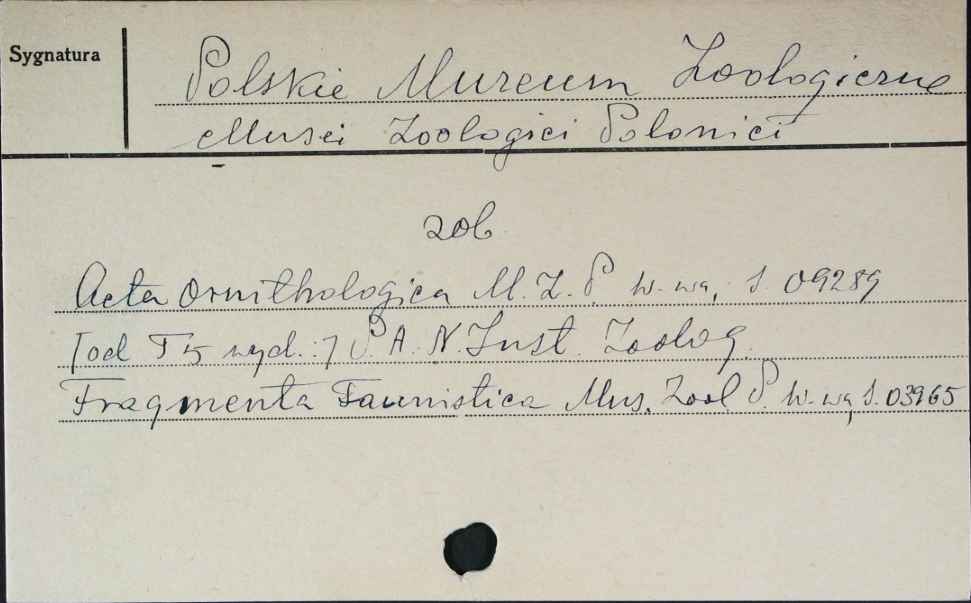 Sygnatura
Polskie Muzeum Zoologiczne
Musei Zoologici Polonici
zob.
Acta Ornithologica M. Z. P. W-wa, S. 09289
[od T 5 wyd.:] P. A. N. Inst. Zoolog.
Fragmenta Faunistica Mus. Zool P. W-wa, S. 03965